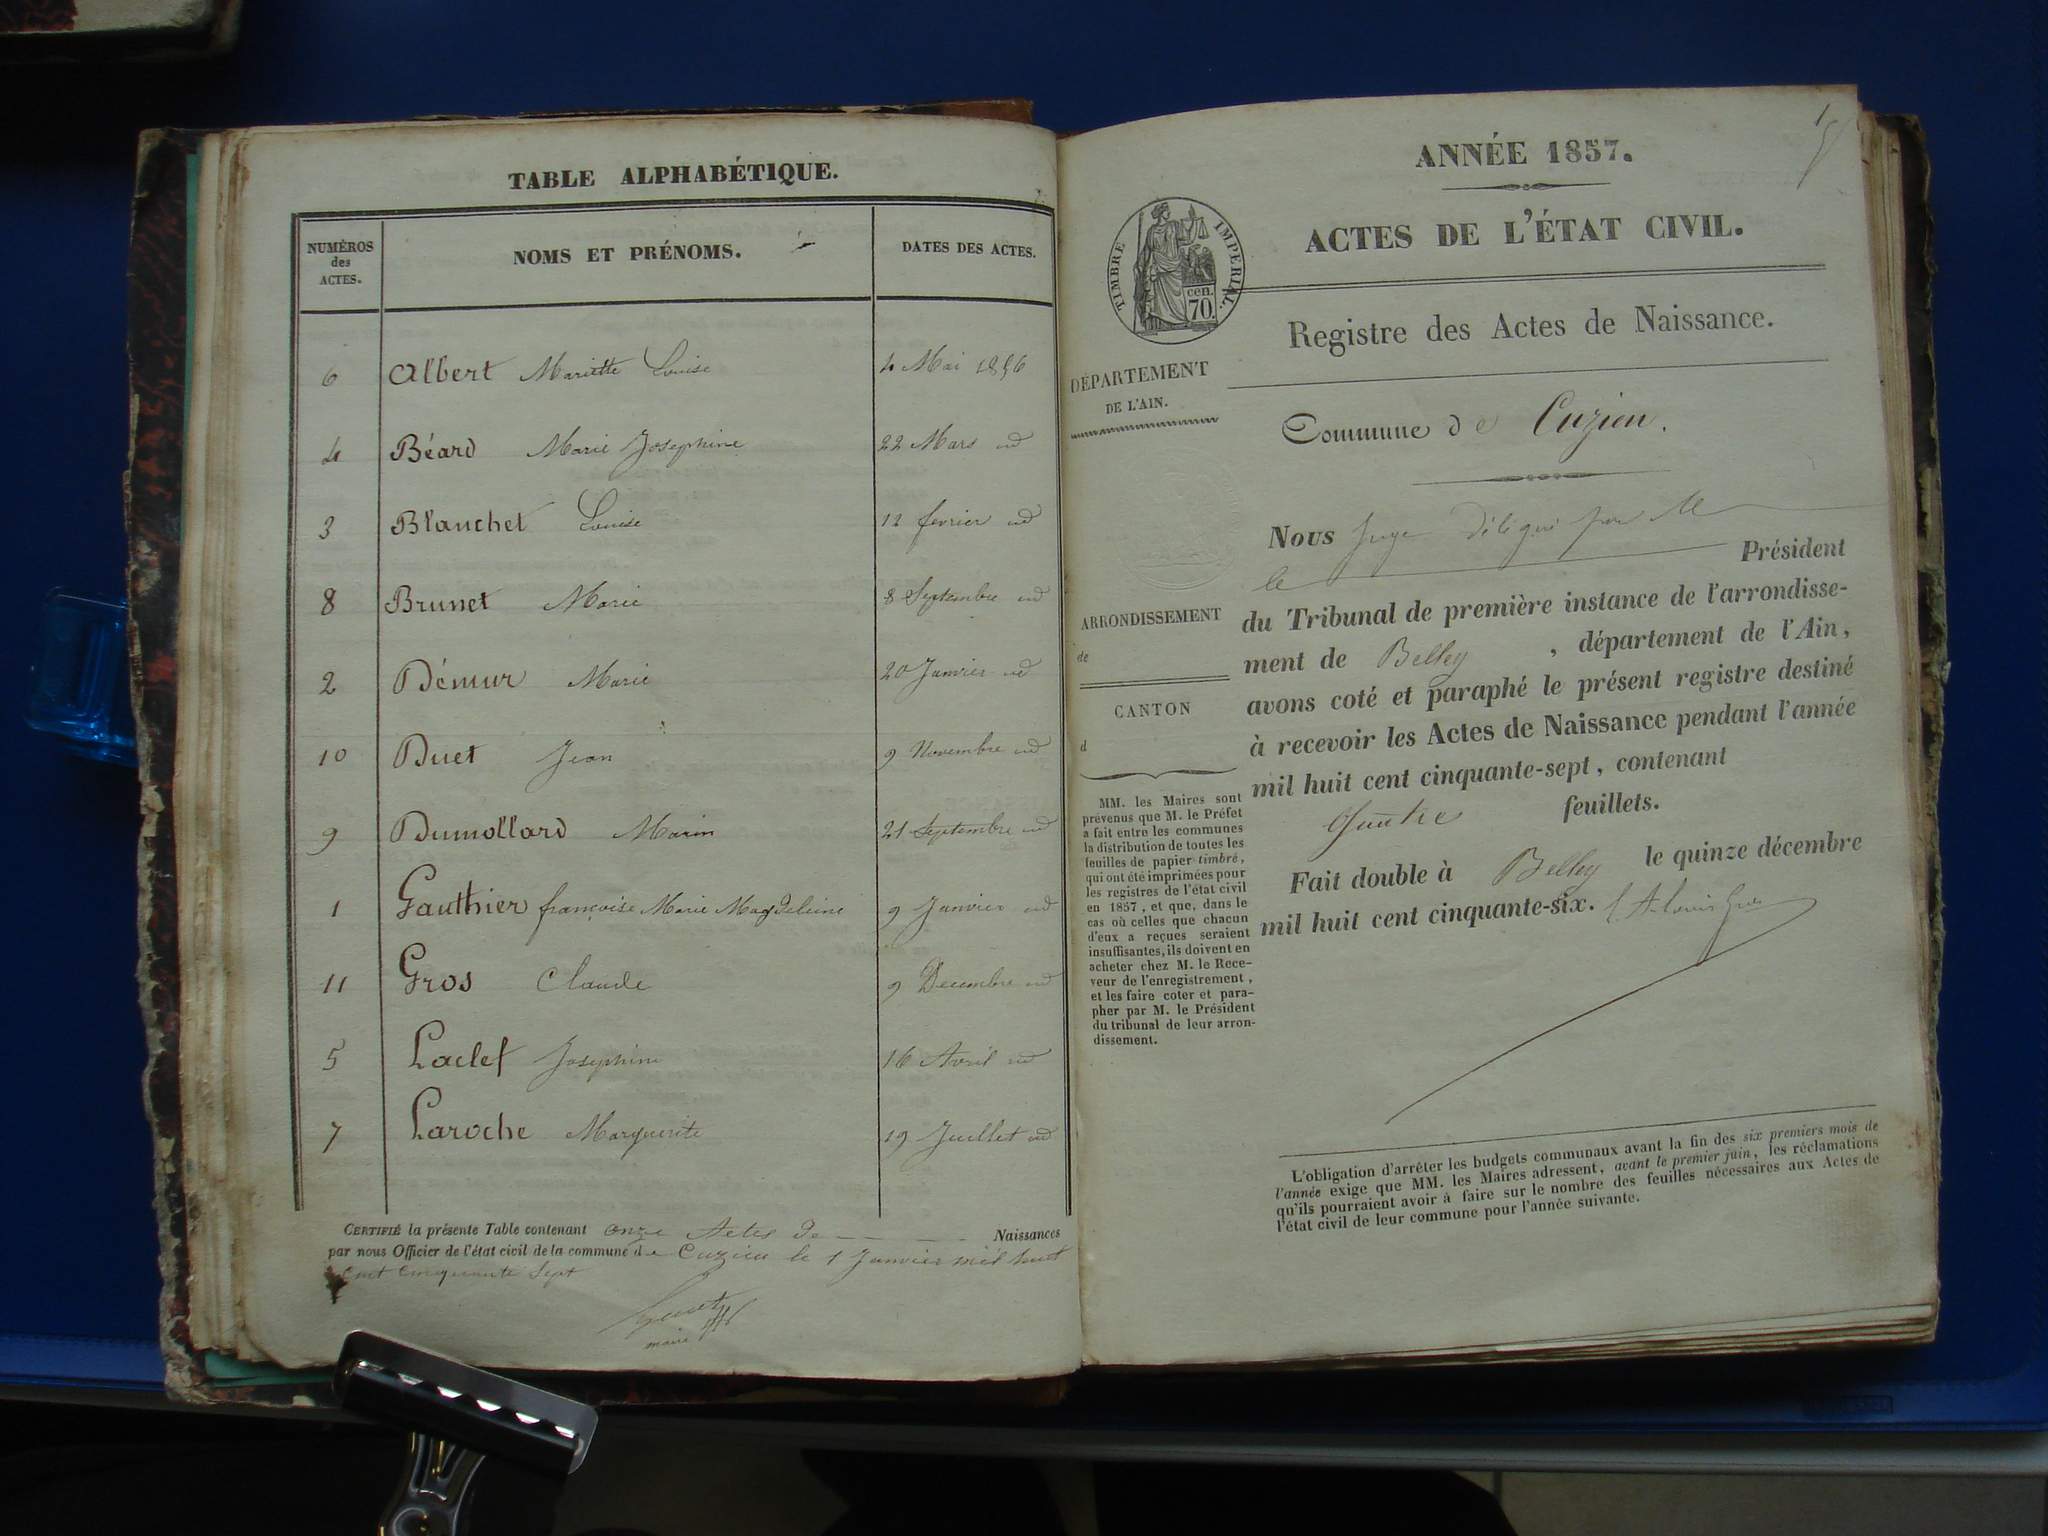 TABLE ALPHABÉTIQUE.
NUMÉROS des ACTES. NOMS ET PRÉNOMS. DATES DES ACTES.
6 Albert Mariette Louise 4 Mai 1856
4 Béard Marie Josephine 22 Mars id
3 Blanchet Louise 12 fevrier id
8 Brunet Marie 8 Septembre id
2 Démur Marie 20 Janvier id
10 Duet Jean 9 Novembre id
9 Dumollard Marin 21 Septembre id
1 Gauthier françoise Marie Magdeleine 9 Janvier id
11 Gros Claude 9 Decembre id
5 Laclef Josephine 16 Avril id
7 Laroche Marguerite 19 Juillet id
CERTIFIÉ la présente Table contenant onze Actes de Naissances
par nous Officier de l'état civil de la commune de Cuzieu le 1 Janvier mil huit
cent cinquante sept
maire
ANNÉE 1857.
ACTES DE L'ÉTAT CIVIL.
TIMBRE IMPERIAL.
cen.
70.
Registre des Actes de Naissance.
DÉPARTEMENT
DE L'AIN.
Commune de Cuzieu.
Nous Juge Délégué par M
le Président
du Tribunal de première instance de l'arrondisse-
ment de Belley, département de l'Ain,
avons coté et paraphé le présent registre destiné
à recevoir les Actes de Naissance pendant l'année
mil huit cent cinquante-sept, contenant
feuillets.
Fait double à Belley le quinze décembre
mil huit cent cinquante-six.
ARRONDISSEMENT
de
CANTON
d
MM. les Maires sont
prévenus que M. le Préfet
a fait entre les communes
la distribution de toutes les
feuilles de papier timbré,
qui ont été imprimées pour
les registres de l'état civil
en 1857, et que, dans le
cas où celles que chacun
d'eux a reçues seraient
insuffisantes, ils doivent en
acheter chez M. le Rece-
veur de l'enregistrement,
et les faire coter et para-
pher par M. le Président
du tribunal de leur arron-
dissement.
L'obligation d'arrêter les budgets communaux avant la fin des six premiers mois de
l'année exige que MM. les Maires adressent, avant le premier juin, les réclamations
qu'ils pourraient avoir à faire sur le nombre des feuilles nécessaires aux Actes de
l'état civil de leur commune pour l'année suivante.